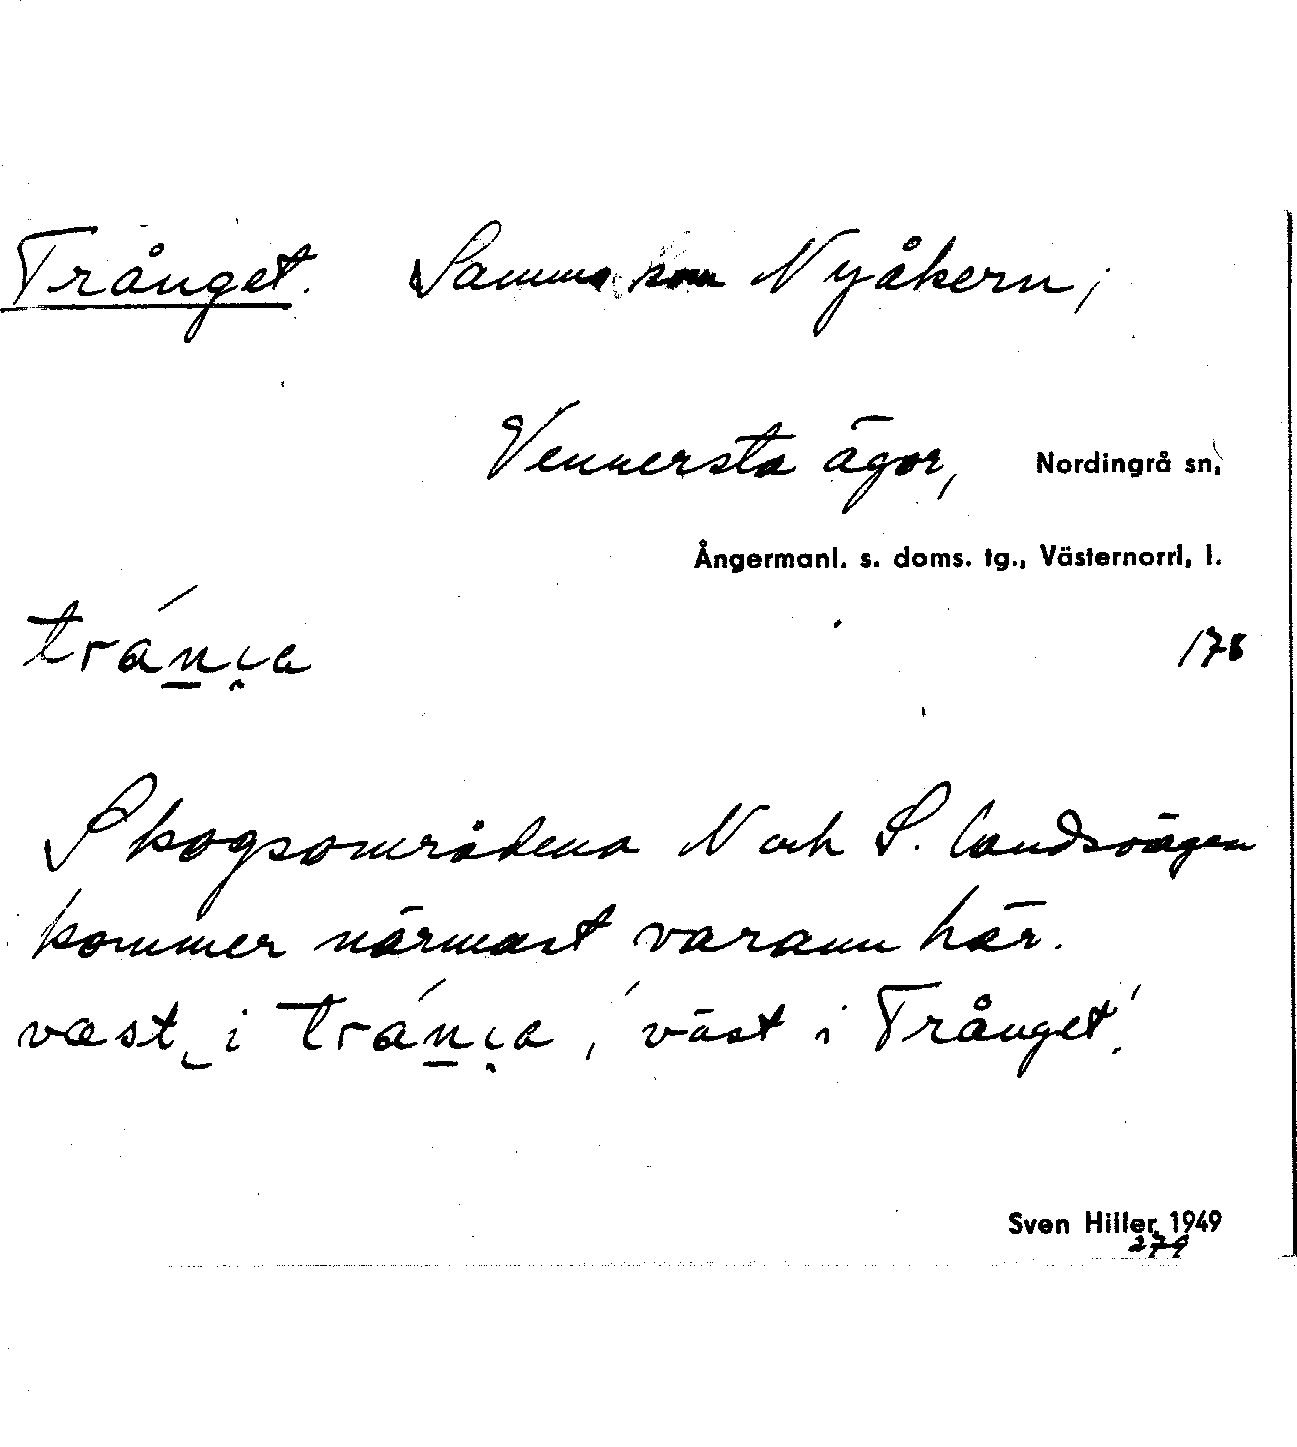 Trånget. Samma som Nyåkern,
Vennersta ägor, Nordingrå sn,
Ångermanl. s. doms. tg., Västernorrl, l.
178
Skogsområdena N och S. landsvägen
kommer närmast varann här.
i 'väst i Trånget'.
Sven Hiller, 1949
279